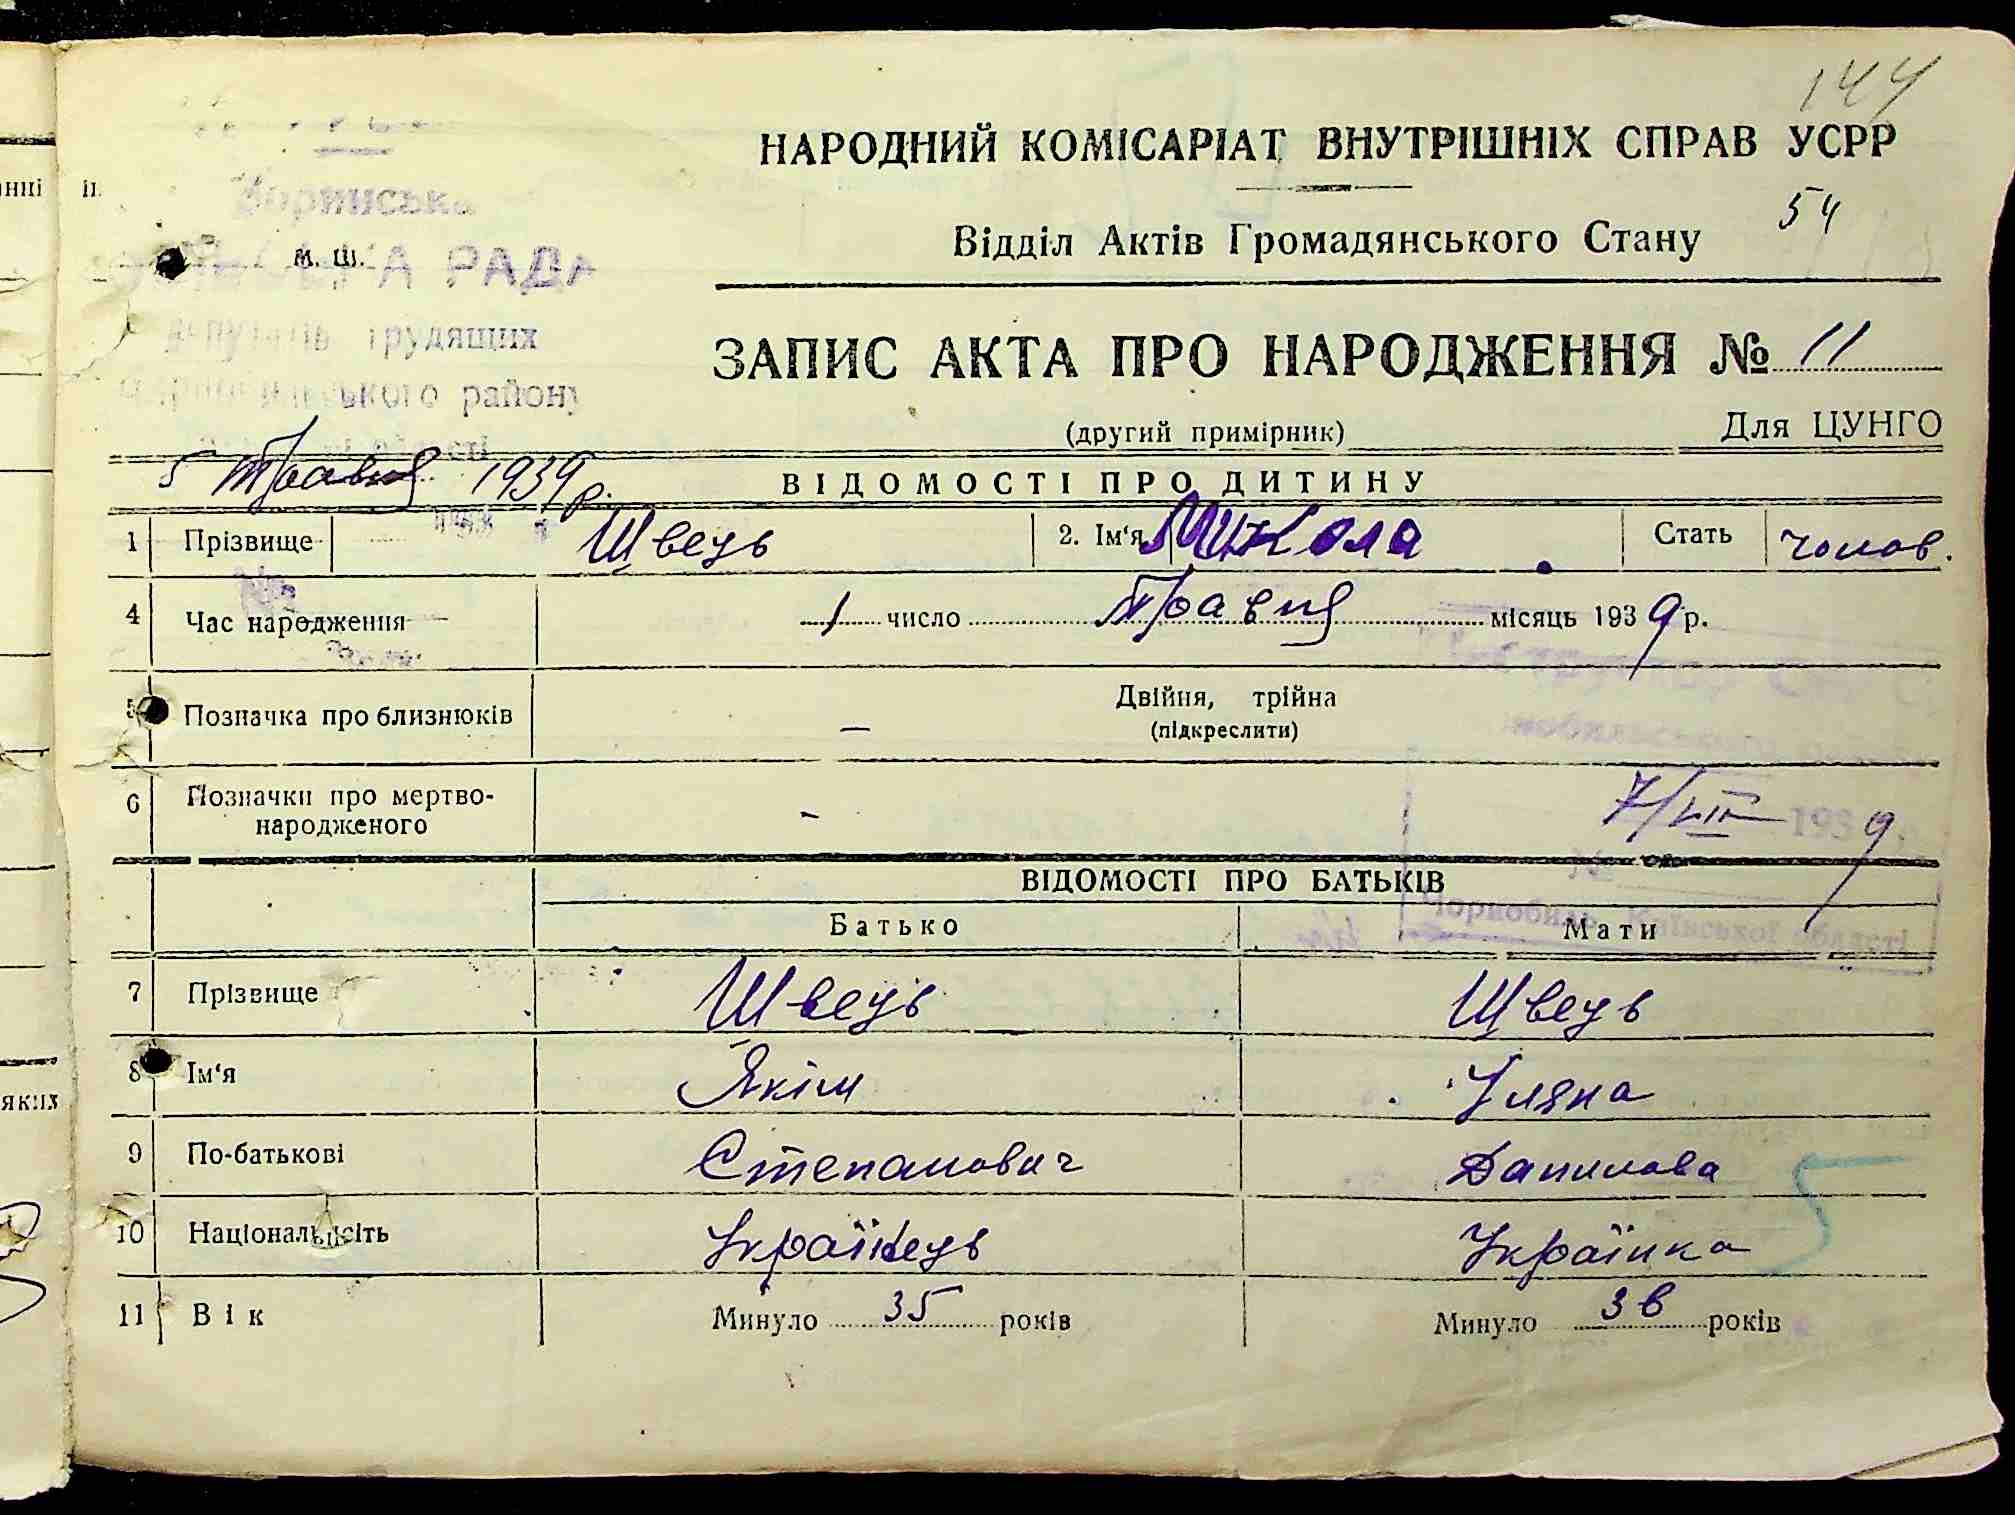 144
НАРОДНИЙ КОМІСАРІАТ ВНУТРІШНІХ СПРАВ УСРР
54
Відділ Актів Громадянського Стану
М. Ш.
РАДА
трудящих
району
ЗАПИС АКТА ПРО НАРОДЖЕННЯ № 11
(другий примірник) Для ЦУНГО
5 Травня 1939 р.
ВІДОМОСТІ ПРО ДИТИНУ
1 Прізвище Швець 2. Ім'я Микола Стать чолов.
4 Час народження 1 число Травня місяць 1939 р.
5 Позначка про близнюків — Двійня, трійна
(підкреслити)
6 Позначки про мертво-
народженого -
7/VIII 1939
№
Чорнобиль Київської області
ВІДОМОСТІ ПРО БАТЬКІВ
Батько Мати
7 Прізвище Швець Швець
8 Ім'я Якім Уляна
9 По-батькові Степанович Данилова
10 Національність Українець Українка
11 Вік Минуло 35 років Минуло 36 років